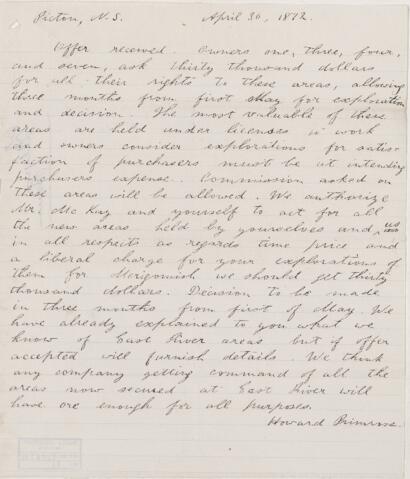 Pictou, N.S. April 30, 1872.
Offer received. Owners one, three, four,
and seven, ask thirty thousand dollars
for all their rights to these areas, allowing
three months from first May for exploration
and decision. The most valuable of these
areas are held under licenses to work
and owners consider explorations for satis-
faction of purchasers must be at intending
purchasers expense. Commission asked on
these areas will be allowed. We authorize
Mr. McKay and yourself to act for all
the new areas held by yourselves and us
in all respects as regards time price and
a liberal charge for your explorations of
them for Merigomish we should get thirty
thousand dollars. Decision to be made
in three months from first of May. We
have already explained to you what we
know of East River areas but if offer
accepted will furnish details. We think
any company getting command of all the
areas now secured at East River will
have ore enough for all purposes.
Howard Primrose.